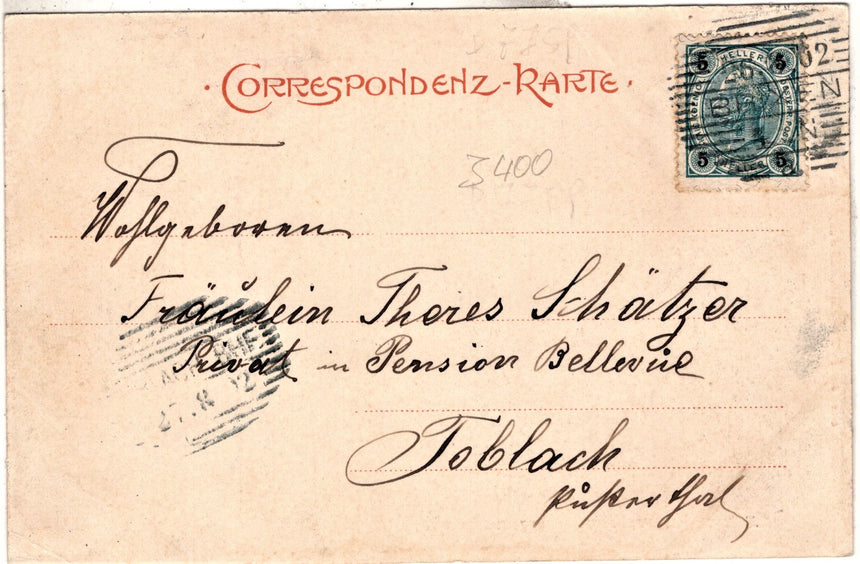 · CORRESPONDENZ-KARTE ·
3400
5 HELLER 5
5 HELLER 5
02
Wohlgeboren
Fräulein Theres Schätzer
Privat in Pension Bellevue
27.8.02
Toblach
Pußterthal